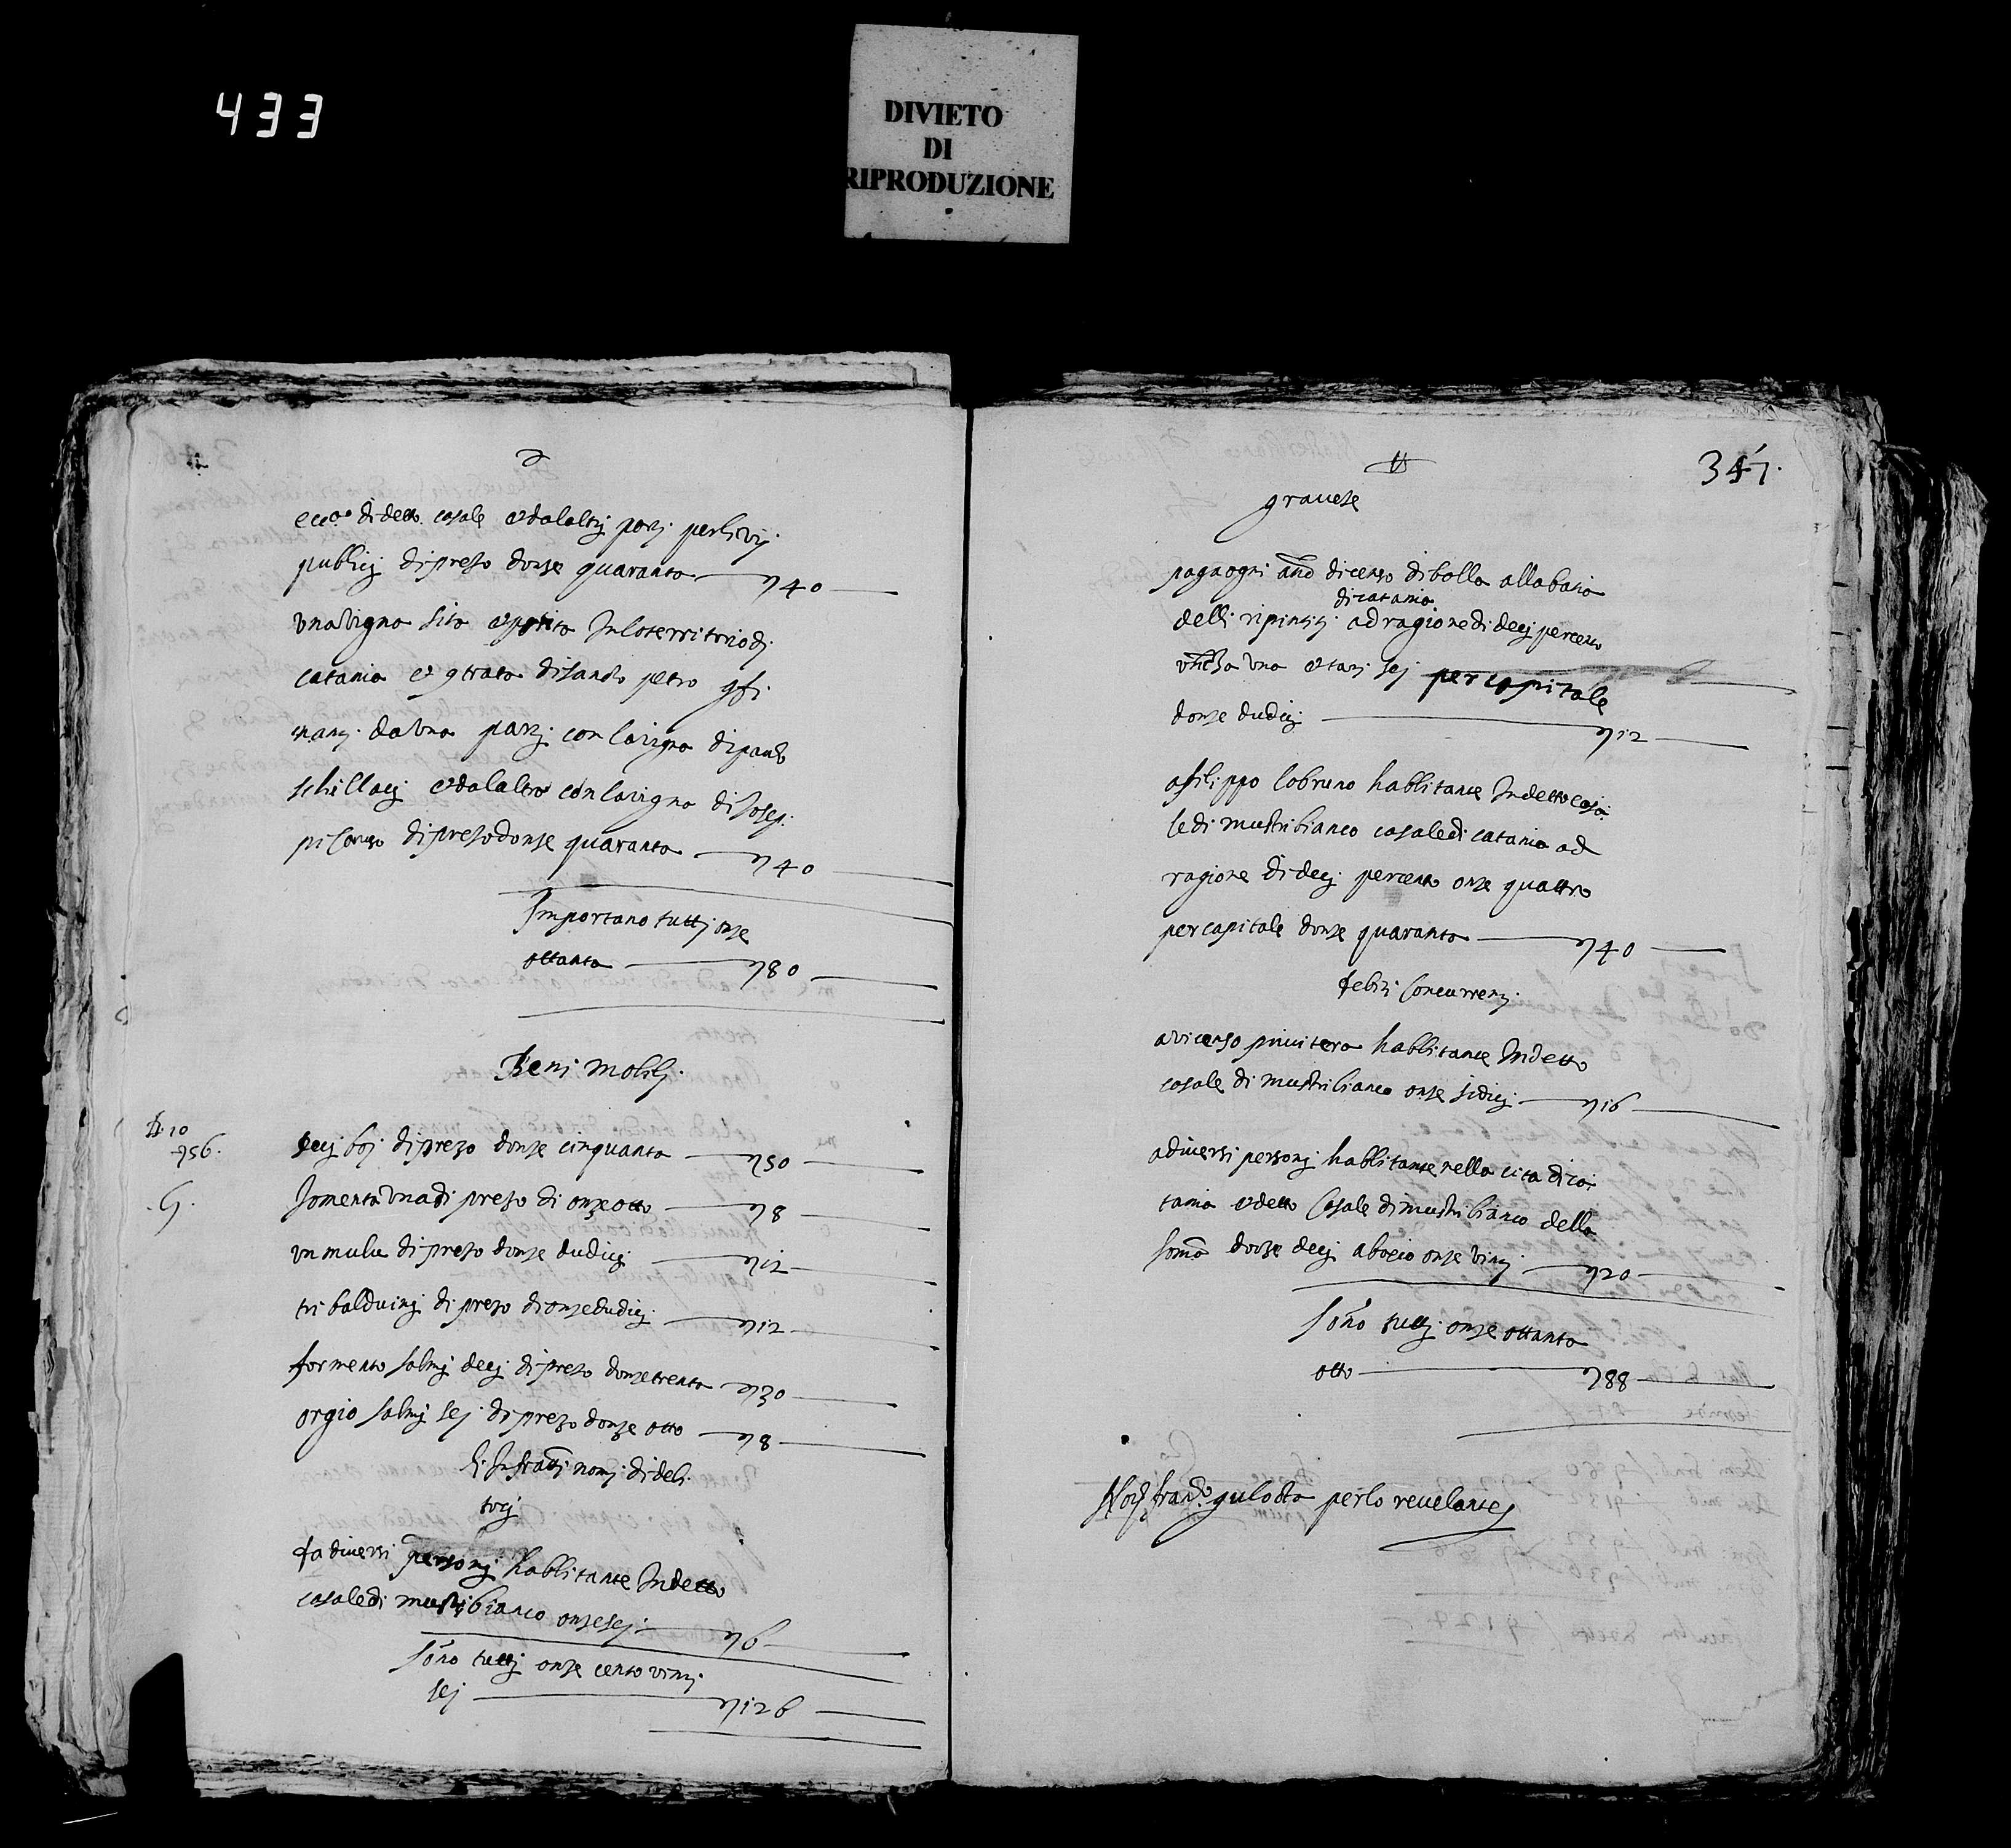 433
DIVIETO
DI
RIPRODUZIONE
di detto casale et dalaltrj partj per li vij
publicj di prezo donze quaranta 40
una vigna sita et posita In lo territorio di
catania et contrata di santo petro confi
nantj da una partj con la vigna di paulo
schillacj et dalaltra con la vigna di Josep
pi di prezo donze quaranta 40
Importano tuttj onze
ottanta 80
Beni mobilj
B. 10
56.
decj boj di prezo donze cinquanta 50
Jomenta una di prezo di onze otto 8
un mulu di prezo donze dudicj 12
tri balduinj di prezo di onze dudicj 12
formento salmj decj di prezo donze trenta 30
orgio salmj sej di prezo donze otto 8
li Infrattj nomj di debi
torj
da diversi personj habbitante In detto
casale di mustribianco onze sej 6
sono tuttj onze cento vintj
sej 126
347.
graveze
paga ogni anno di censo di bolla alla batia
di catania
delli ripintiti ad ragione di decj per cento
onza una et tarj sej per capitale
donze dudicj 12
a filippo lobruno habbitante In detto casa
le di mustribianco casale di catania ad
ragione di decj per cento onze quattro
per capitale donze quaranta 40
debiti concurrentj
a vicenzo privitera habbitante In detto
casale di mustribianco onze sidicj 16
a diversi personj habbitante nella cita di ca
tania et detto casale di mustribianco della
soma donze decj onze vintj 20
sono tuttj onze ottanta
otto 88
Not. franc.o gulotta per lo revelante